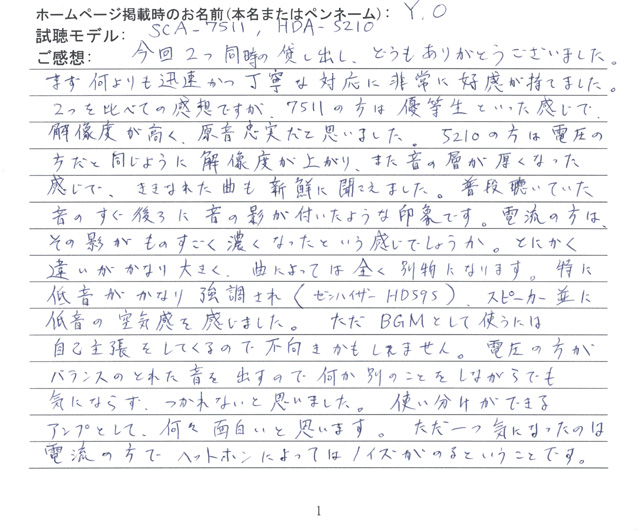 ホームページ掲載時のお名前(本名またはペンネーム): Y.O
試聴モデル: SCA-7511, HDA-5210
ご感想: 今回2つ同時の貸し出し、どうもありがとうございました。
まず何よりも迅速かつ丁寧な対応に非常に好感が持てました。
2つを比べての感想ですが、7511の方は優等生といった感じで、
解像度が高く、原音忠実だと思いました。5210の方は電圧の
方だと同じように解像度が上がり、また音の層が厚くなった
感じで、ききなれた曲も新鮮に聞こえました。普段聴いていた
音のすぐ後ろに音の影が付いたような印象です。電流の方は、
その影がものすごく濃くなったという感じでしょうか。とにかく
違いがかなり大きく、曲によっては全く別物になります。特に
低音がかなり強調され(ゼンハイザーHD595)、スピーカー並に
低音の空気感を感じました。ただBGMとして使うには
自己主張をしてくるので不向きかもしれません。電圧の方が
バランスのとれた音を出すので何か別のことをしながらでも
気にならず、つかれないと思いました。使い分けができる
アンプとして、何々面白いと思います。ただ一つ気になったのは
電流の方でヘッドホンによってはノイズがのるということです。
1